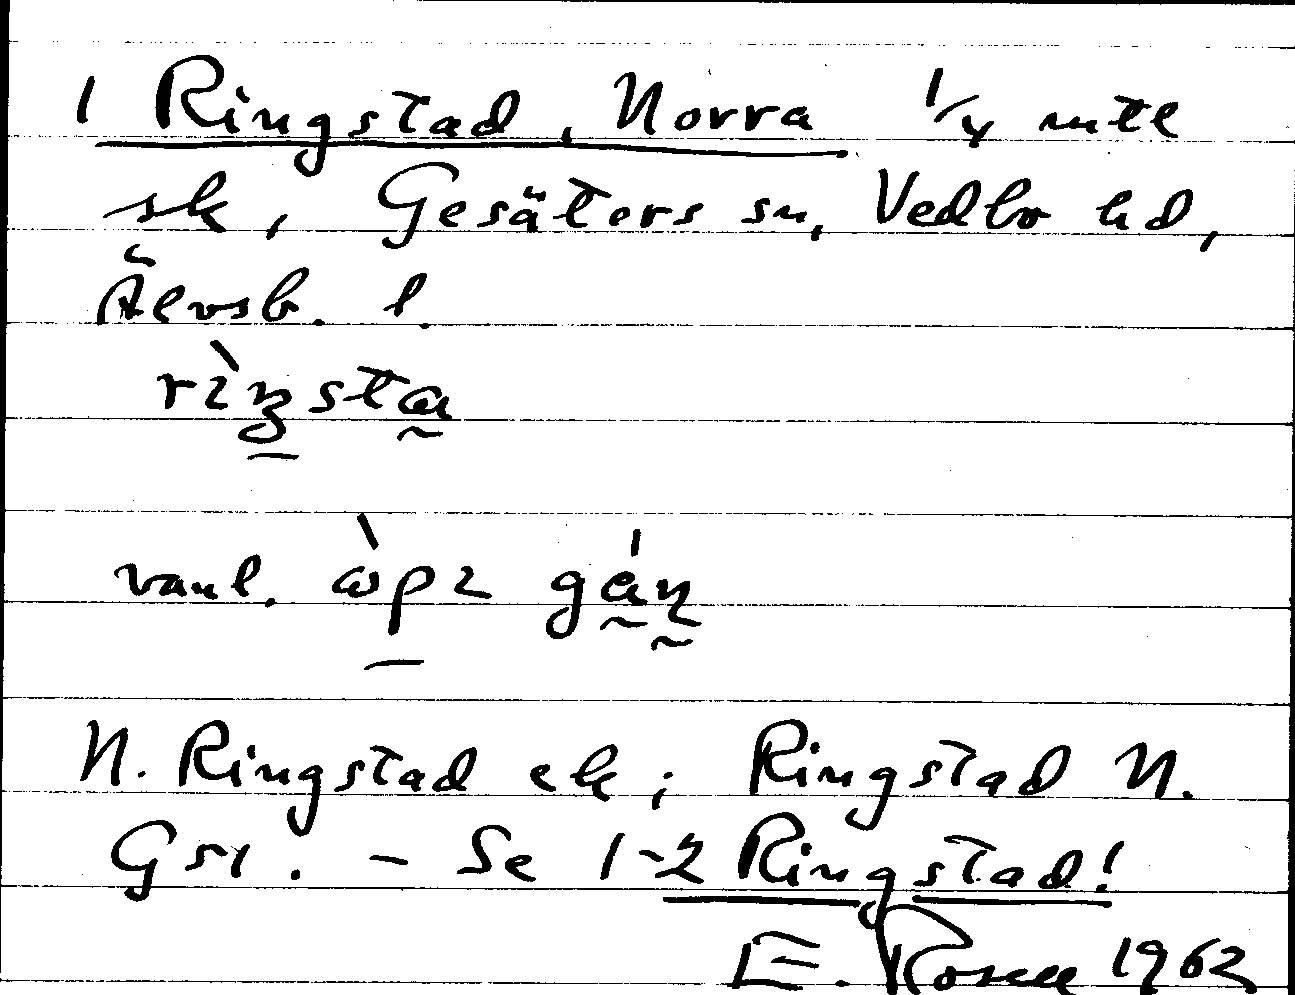 1 Ringstad, Norra 1/4 mtl
sk, Gesäters sn, Vedbo hd,
Älvsb. l.
rìŋsta
vanl. 
N. Ringstad ek; Ringstad N.
GSI. - Se 1-2 Ringstad!
E. Rosell 1962